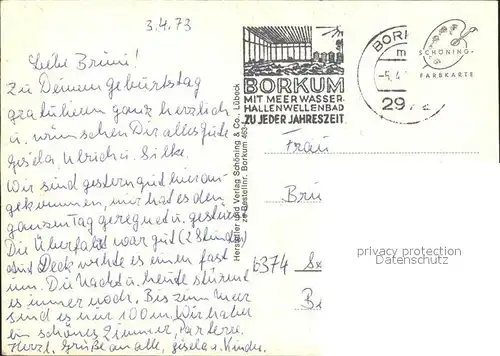 3.4.73
Liebe Brüni!
Zu Deinem Geburtstag
gratulieren ganz herzlich
u. wünschen Dir alles Gute
Gisela, Ulrich u. Silke.
Wir sind gestern gut hier an-
gekommen, nur hat es den
ganzen Tag geregnet u. gestürmt
Die Überfahrt war gut (2 Stunden)
auf Deck wehte es einen fast
um. Die Nacht u. heute stürmt
es immer noch. Bis zum Meer
sind es nur 100 m. Wir haben
ein schönes Zimmer, Parterre.
Herzl. Grüße an alle, Gisela u. Kinder.
BORKUM
MIT MEERWASSER-
HALLENWELLENBAD
ZU JEDER JAHRESZEIT
BORK
-5.4.
297
SCHÖNING-
FARBKARTE
Hersteller und Verlag Schöning & Co., Lübeck
Bestellnr. Borkum
Frau
Brü
6374
privacy protection
Datenschutz